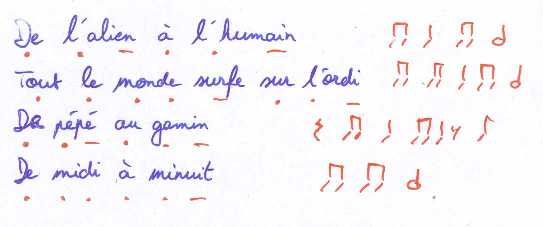 De l'alien à l'humain
Tout le monde surfe sur l'ordi
De pépé au gamin
De midi à minuit